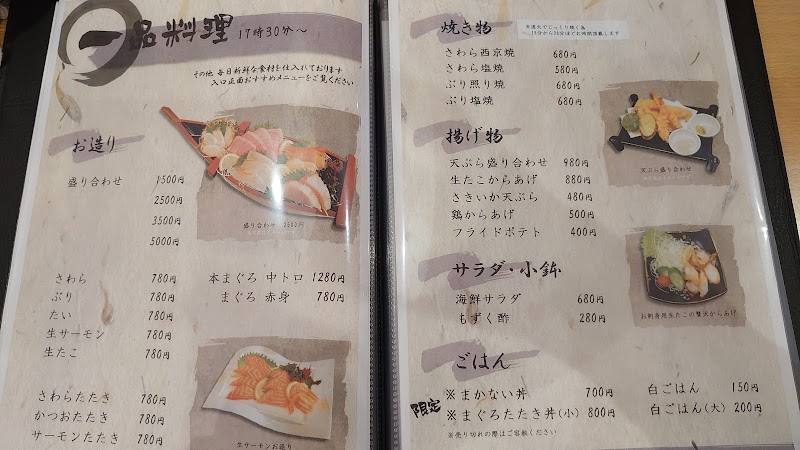 一品料理 17時30分～
その他 毎日新鮮な食材を仕入れております
入口正面おすすめメニューをご覧ください
お造り
盛り合わせ 1500円
2500円
3500円
5000円
盛り合わせ 2500円
さわら 780円
ぶり 780円
たい 780円
生サーモン 780円
生たこ 780円
本まぐろ 中トロ 1280円
まぐろ 赤身 780円
さわらたたき 780円
かつおたたき 780円
サーモンたたき 780円
生サーモンお造り
焼き物
炭遠火でじっくり焼く為
15分から20分ほどお時間頂戴します
さわら西京焼 680円
さわら塩焼 580円
ぶり照り焼 680円
ぶり塩焼 680円
揚げ物
天ぷら盛り合わせ 980円
生たこからあげ 880円
さきいか天ぷら 480円
鶏からあげ 500円
フライドポテト 400円
天ぷら盛り合わせ
サラダ・小鉢
海鮮サラダ 680円
もずく酢 280円
お刺身用生たこの贅沢からあげ
ごはん
限定
※まかない丼 700円
※まぐろたたき丼(小) 800円
※売り切れの際はご容赦ください
白ごはん 150円
白ごはん(大) 200円